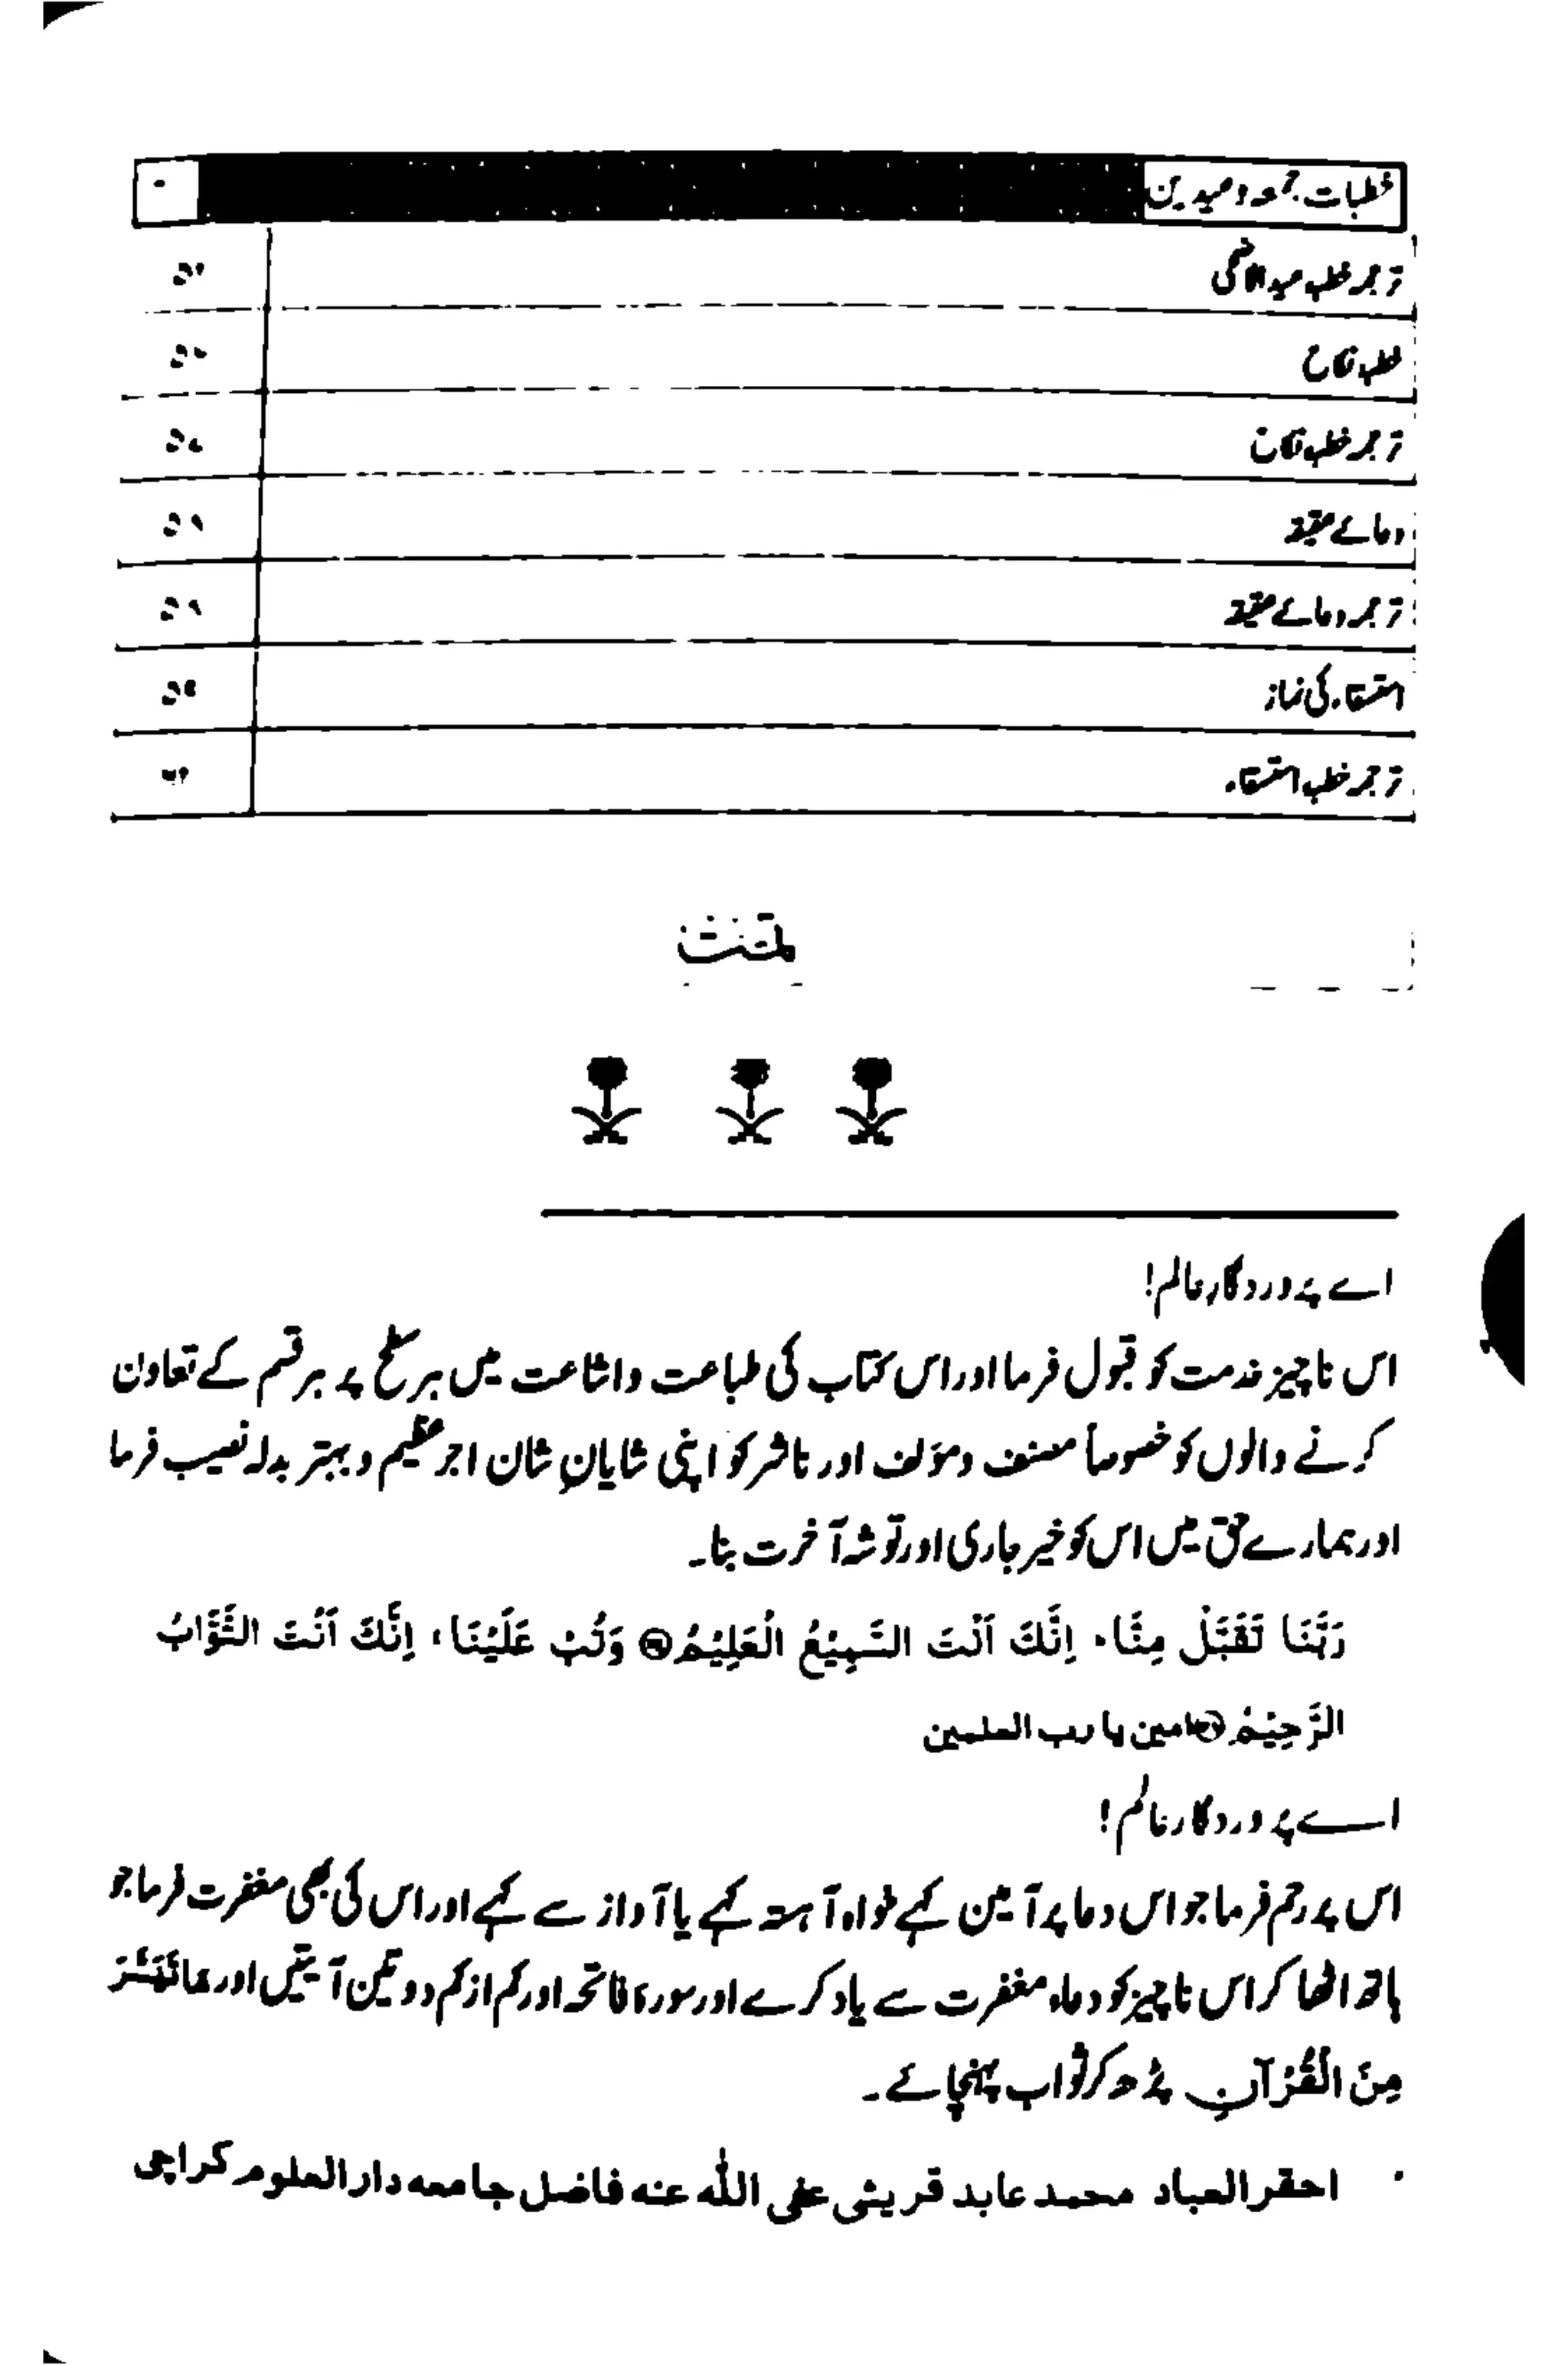 خطبات جمعہ و عیدین
ترجمہ خطبہ عیدالاضحیٰ
خطبہ نکاح
ترجمہ خطبہ نکاح
دعائے عقیقہ
ترجمہ دعائے عقیقہ
استسقاء کی نماز
ترجمہ خطبہ استسقاء
اے پروردگار عالم!
اس ناچیز خدمت کو قبول فرما اور اس کتاب کی طباعت و اشاعت میں ہر سطح پر ہر قسم کے تعاون
کرنے والوں کو خصوصاً مصنف و مؤلف اور ناشر کو اپنی شایانِ شان اجر عظیم و بہتر بدلہ نصیب فرما
اور ہمارے حق میں اس کو خیر جاری اور توشہ آخرت بنا۔
رَبَّنَا تَقَبَّلْ مِنَّا، اِنَّكَ اَنْتَ السَّمِيْعُ الْعَلِيْمُ وَتُبْ عَلَيْنَا، اِنَّكَ اَنْتَ التَّوَّابُ
الرَّحِيْمُ امين يا رب العلمين
اے پروردگار عالم!
اس پر رحم فرما جو اس دعا پر آمین کہے خواہ آہستہ کہے یا آواز سے کہے اور اس کی بھی مغفرت فرما جو
ہاتھ اٹھا کر اس ناچیز کو دعاء مغفرت سے یاد کرے اور سورہ فاتحہ اور کم از کم دو تین آیتیں اور مَاتَيَسَّرَ
مِنَ الْقُرْآنِ پڑھ کر ثواب پہنچائے۔
احقر العباد محمد عابد قریشی عفی اللہ عنہ فاضل جامعہ دارالعلوم کراچی